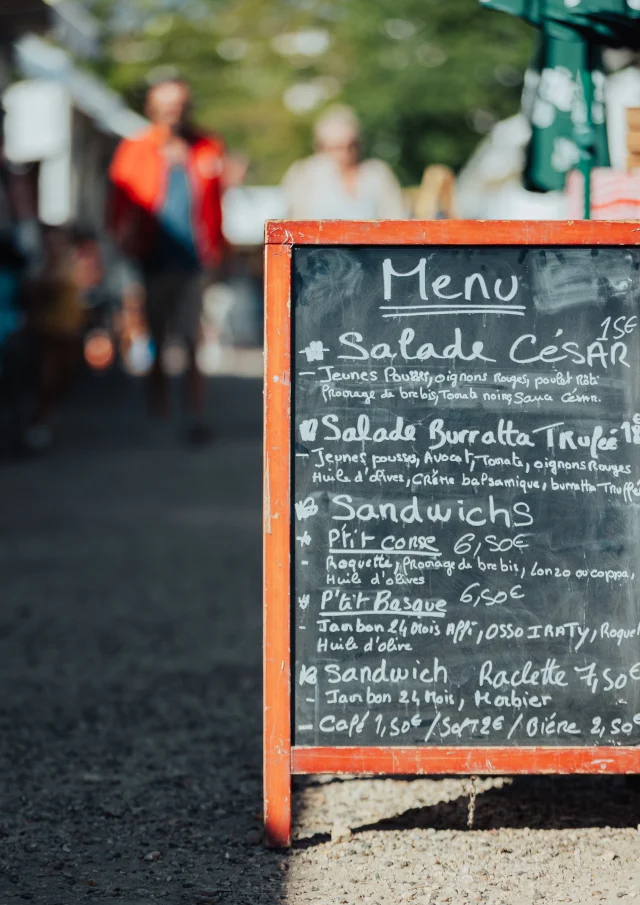 Menu
15€
Salade CéSAR
- Jeunes Pousses, oignons Rouges, poulet Rôti
Fromage de brebis, Tomate noire, Sauce César.
Salade Burratta Trufée
- Jeunes pousses, Avocat, Tomate, oignons Rouges
Huile d'olives, Crème balsamique, burratta Truffé
Sandwichs
P'tit corse 6,50€
- Roquette, Fromage de brebis, Lonzo ou coppa,
Huile d'olives
P'tit Basque 6,50€
- Jambon 24 Mois Affi, OSSO IRATY, Roquet
Huile d'olive
Sandwich Raclette 7,50€
- Jambon 24 Mois, Morbier
- Café 1,50€ / Soft 2€ / Bière 2,50€